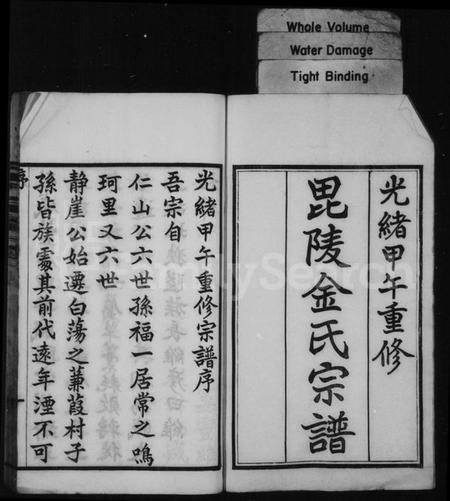 Whole Volume
Water Damage
Tight Binding
光緒甲午重修
毘陵金氏宗譜
光緒甲午重修宗譜序
吾宗自
仁山公六世孫福一居常之鳴
珂里又六世
静崖公始遷白蕩之蒹葭村子
孫皆族處其前代遠年湮不可
序
一